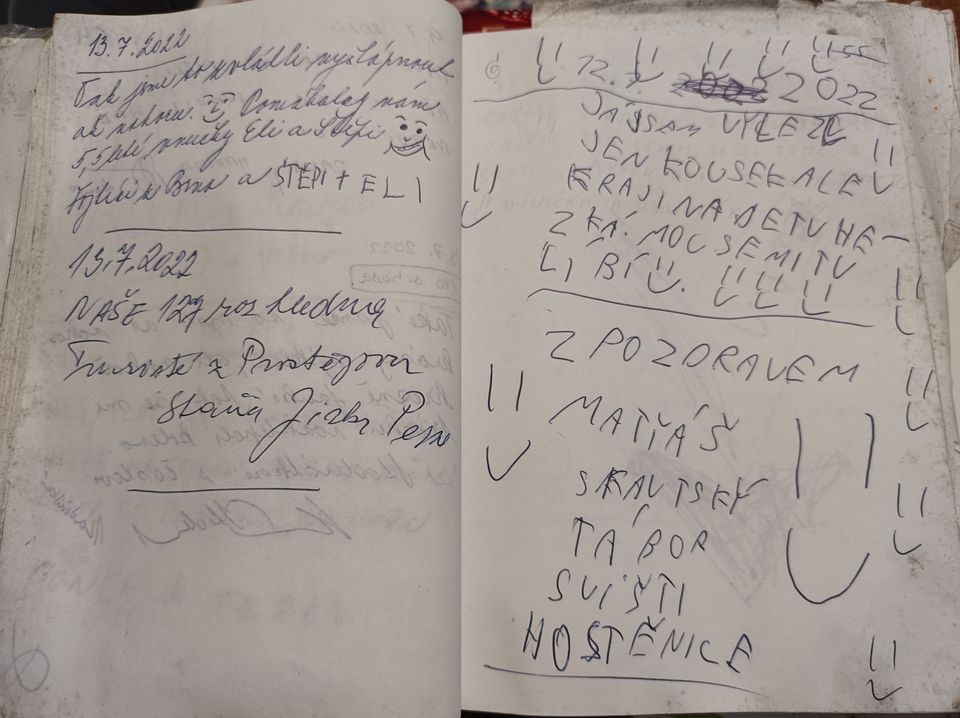 13.7.2022
Tak jsme to zvládli vyšlápnout
až nahoru. Pomáhaly nám
5,5 leté vnučky Eli a Štěpi
Fojtíci z Brna a ŠTĚPI + ELI
13.7.2022
NAŠE 127 rozhledna
Turisté z Prostějova
Staňa Jirka
12. 7. 2022
JÁ JSAM VYLEZL
JEN KOUSEK ALE
KRAJINA JE TU HE-
ZKÁ. MOC SE MI TU
LÍBÍ
Z POZDRAVEM
MATIÁŠ
SKAUTSKÝ
TÁBOR
SVIŠTI
HOSTĚNICE